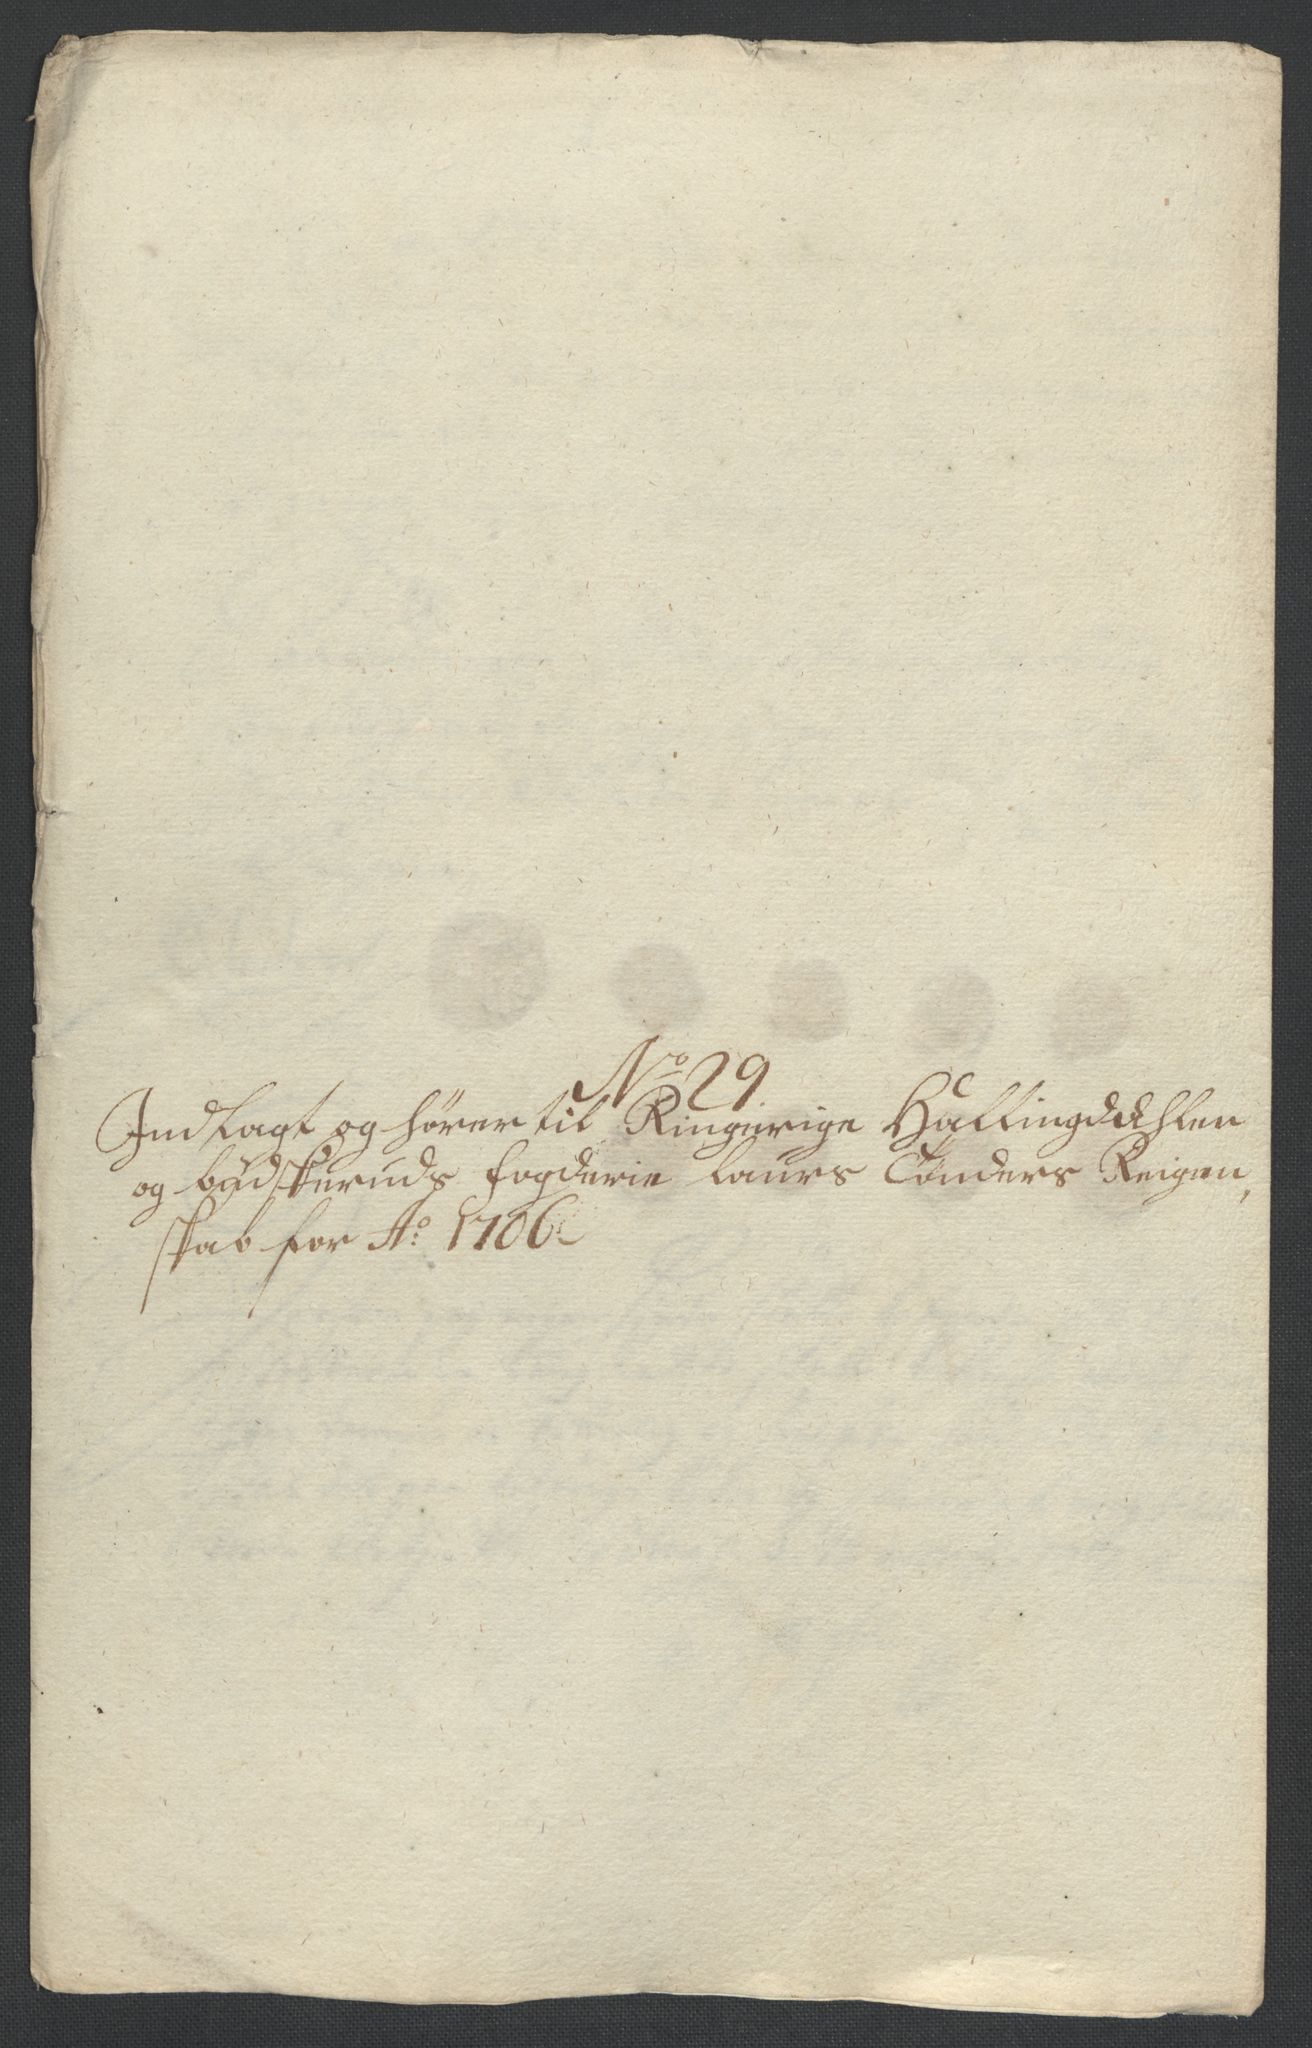 No 29.
Indlagt og hører til Ringerige Hallingdahlen
og budskeruds fogderie Laurs Tønders Reigen,
skab for Ao: 1706